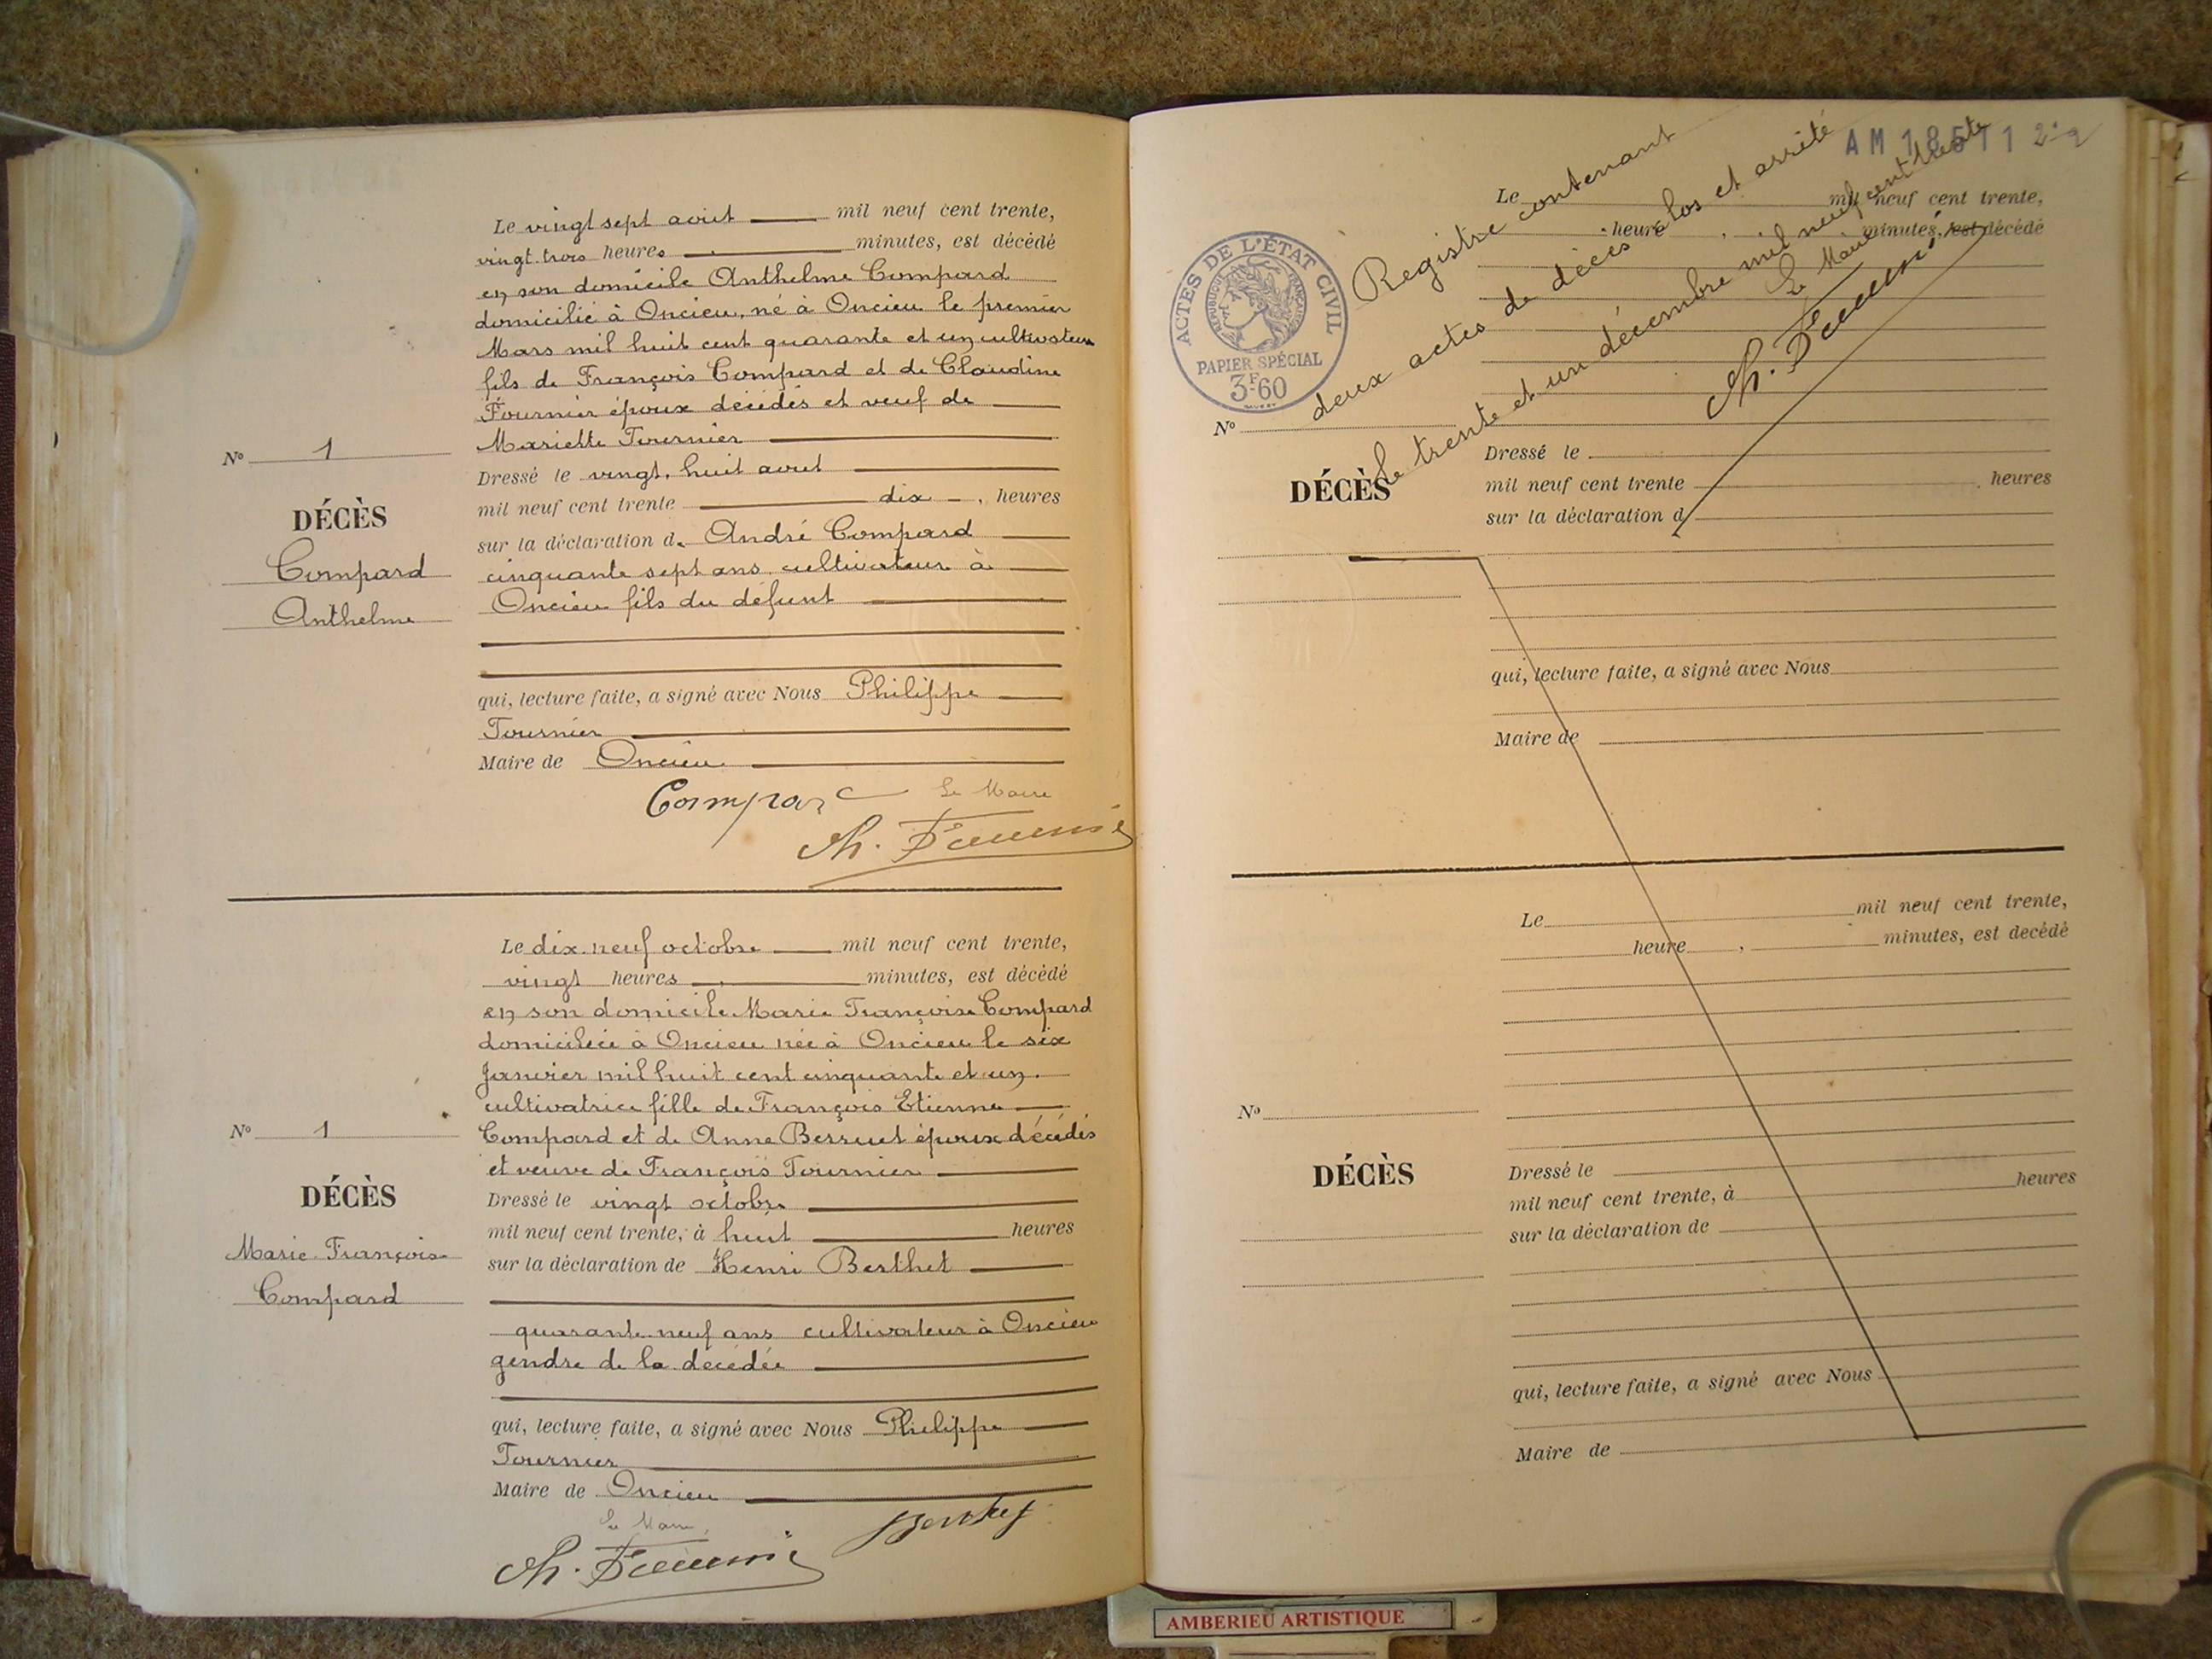 Le vingt sept août mil neuf cent trente,
vingt trois heures minutes, est décédé
en son domicile Anthelme Compard
domicilié à Oncieu, né à Oncieu le premier
Mars mil huit cent quarante et un cultivateur
fils de François Compard et de Claudine
Fournier époux décédés et veuf de
Mariette Tournier
Nº 1
Dressé le vingt huit aout
mil neuf cent trente dix heures
DÉCÈS
sur la déclaration d. André Compard
Compard
cinquante sept ans cultivateur à
Anthelme
Oncieu fils du défunt
qui, lecture faite, a signé avec Nous Philippe
Tournier
Maire de Oncieu
Compard Le Maire
Ph. Tournier
Le dix neuf octobre mil neuf cent trente,
vingt heures minutes, est décédé
en son domicile Marie Françoise Compard
domiciliée à Oncieu née à Oncieu le six
Janvier mil huit cent cinquante et un
cultivatrice fille de François Etienne
Nº 1
Compard et de Anne Berruet époux décédés
et veuve de François Tournier
DÉCÈS
Dressé le vingt octobre
mil neuf cent trente, à huit heures
Marie Françoise
sur la déclaration de Henri Berthet
Compard
quarante neuf ans cultivateur à Oncieu
gendre de la décédée
qui, lecture faite, a signé avec Nous Philippe
Tournier
Maire de Oncieu
Le Maire,
Ph. Tournier Berthet
AM 18511 2
Registre contenant
deux actes de décès clos et arrêté
Le trente et un décembre mil neuf cent trente
Le Maire
Ph. Tournier
ACTES DE L'ÉTAT CIVIL
RÉPUBLIQUE FRANÇAISE
PAPIER SPÉCIAL
3F60
Le mil neuf cent trente,
heure minutes, est décédé
Nº
Dressé le
DÉCÈS
mil neuf cent trente heures
sur la déclaration d
qui, lecture faite, a signé avec Nous
Maire de
Le mil neuf cent trente,
heure , minutes, est decédé
Nº
DÉCÈS
Dressé le
mil neuf cent trente, à heures
sur la déclaration de
qui, lecture faite, a signé avec Nous
Maire de
AMBERIEU ARTISTIQUE